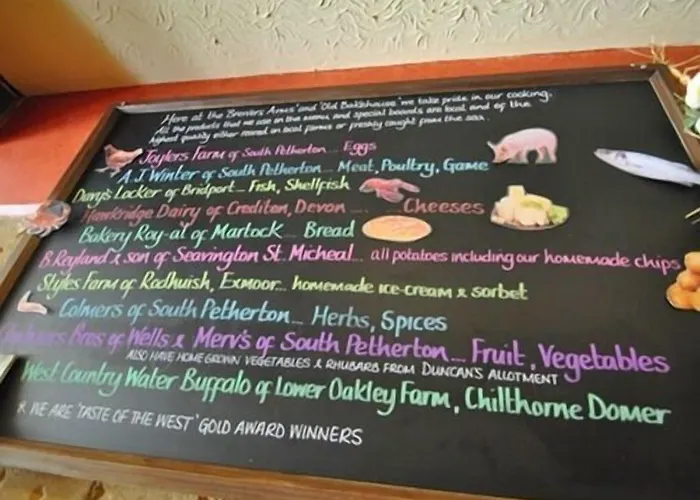 Here at the 'Brewers Arms' and 'Old Bakehouse' we take pride in our cooking.
All the products that we use in the menu, and special boards are local and of the
highest quality either reared on local farms or freshly caught from the sea.
Joylers Farm of South Petherton.... Eggs
A.J Winter of South Petherton... Meat, Poultry, Game
Davy's Locker of Bridport... Fish, Shellfish
Hawkridge Dairy of Crediton, Devon ..... Cheeses
Bakery Roy-al of Martock... Bread
B.Reyland & son of Seavington St. Micheal... all potatoes including our homemade chips
Styles Farm of Rodhuish, Exmoor... homemade ice-cream & sorbet
Colmers of South Petherton... Herbs, Spices
Bros of Wells & Merv's of South Petherton.... Fruit, Vegetables
ALSO HAVE HOMEGROWN VEGETABLES & RHUBARB FROM DUNCAN'S ALLOTMENT
West Country Water Buffalo of Lower Oakley Farm, Chilthorne Domer
* WE ARE 'TASTE OF THE WEST' GOLD AWARD WINNERS